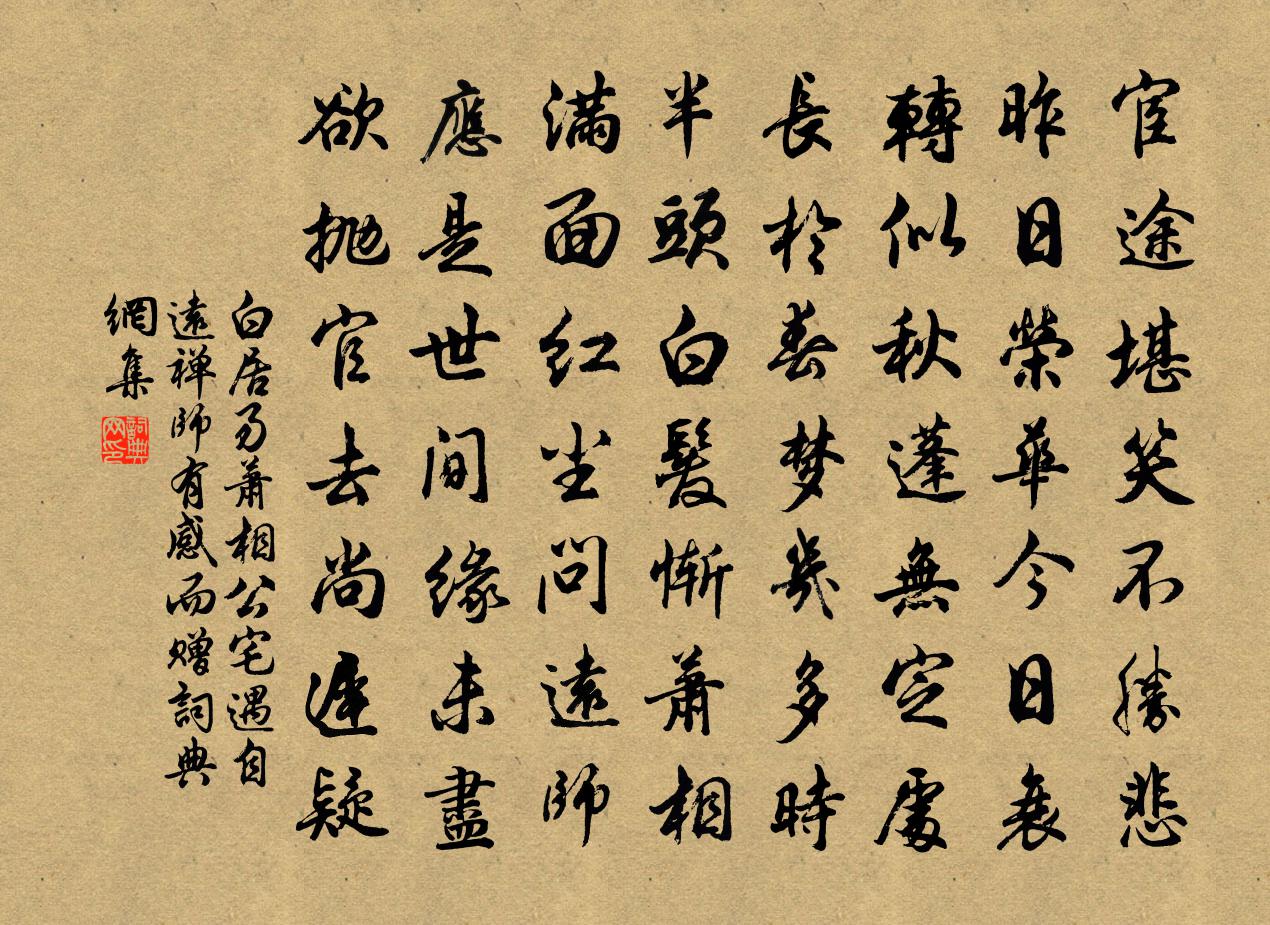 宦途堪笑不勝悲
昨日榮華今日衰
轉似秋蓬無定處
長於春梦幾多時
半頭白髮慚蕭相
滿面紅尘問遠師
應是世間緣未盡
欲抛官去尚遲疑
白居易蕭相公宅遇自
遠禅師有感而贈詞典
網集
詞典
网印